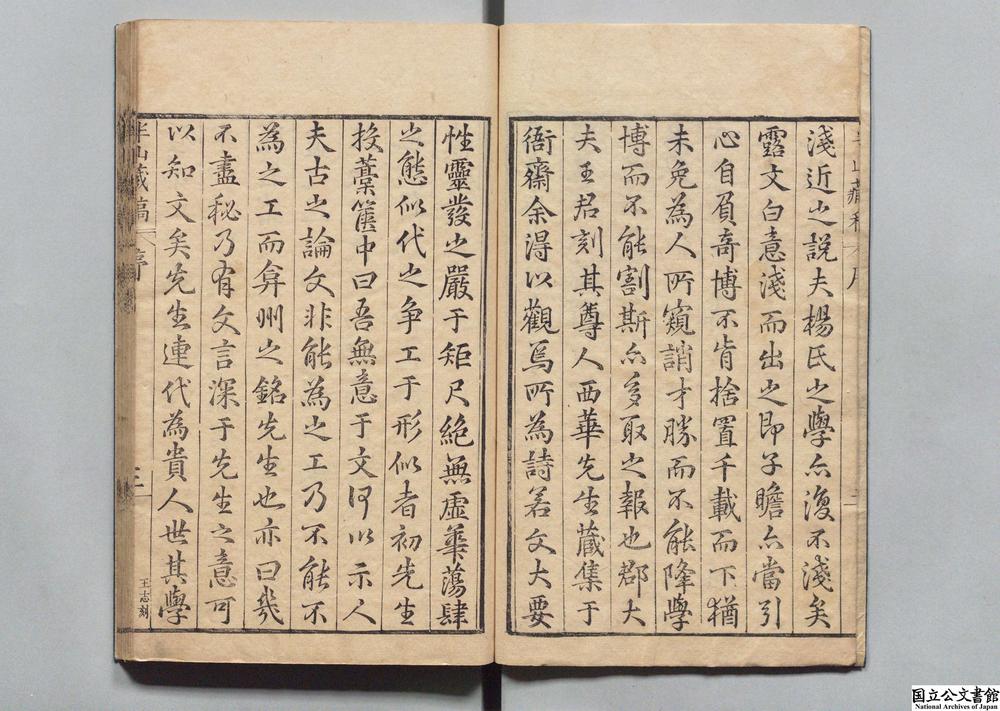 淺近之說夫楊氏之學亦復不淺矣
露文白意淺而出之即子瞻亦當引
心自負奇博不肯捨置千載而下猶
未免為人所窺誚才勝而不能降學
博而不能割斯亦多取之報也郡大
夫王君刻其尊人西華先生藏集于
衙齋余得以觀焉所為詩若文大要
性靈發之嚴于矩尺絕無虛華蕩肆
之態似代之争工于形似者初先生
投藁篋中曰吾無意于文何以示人
夫古之論文非能為之工乃不能不
為之工而弇州之銘先生也亦曰我
不盡秘乃有文言深于先生之意可
以知文矣先生連代為貴人世其學
半山藏稿
序
三
王志刻
国立公文書館
National Archives of Japan